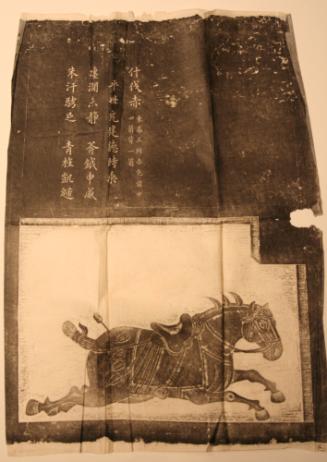 什伐赤
純赤色前中
四箭背中一箭
平世充建德時乘
瀍澗未靜 斧鉞申威
朱汗騁足 青旌凱歸